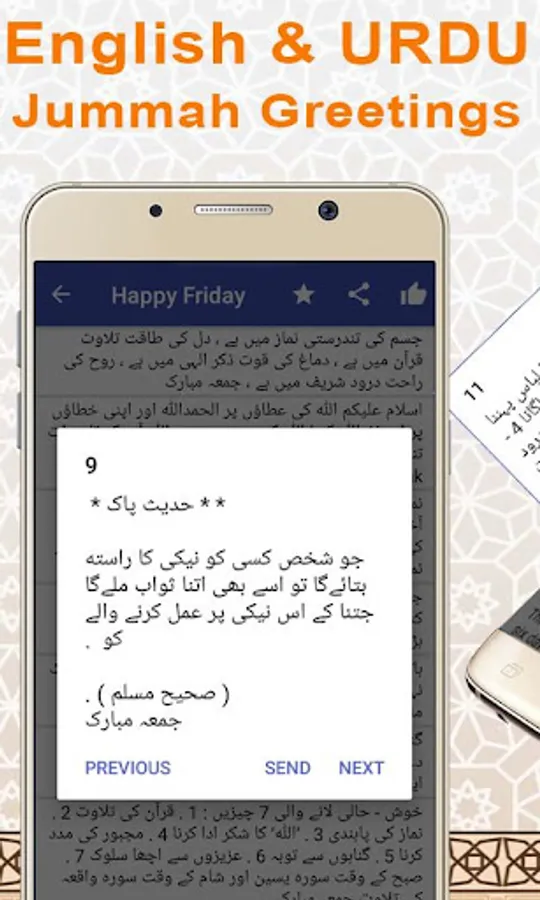 English & URDU
Jummah Greetings
Happy Friday
جسم کی تندرستی نماز میں ہے ، دل کی طاقت تلاوت
قرآن میں ہے ، دماغ کی قوت ذکر الہی میں ہے ، روح کی
راحت درود شریف میں ہے ، جمعہ مبارک
اسلام علیکم اللہ کی عطاؤں پر الحمداللہ اور اپنی خطاؤں
9
* * حدیث پاک *
جو شخص کسی کو نیکی کا راستہ
بتائےگا تو اسے بھی اتنا ثواب ملےگا
جتنا کے اس نیکی پر عمل کرنے والے
کو .
( صحیح مسلم ) .
جمعہ مبارک
PREVIOUS SEND NEXT
خوش - حالی لانے والی 7 چیزیں : 1 . قرآن کی تلاوت 2 .
نماز کی پابندی 3 . ’اللہ‘ کا شکر ادا کرنا 4 . مجبور کی مدد
کرنا 5 . گناہوں سے توبہ 6 . عزیزوں سے اچھا سلوک 7 .
صبح کے وقت سورہ یسین اور شام کے وقت سورہ واقعہ
کی تلاوت جمعہ مبارک
11
لباس پہننا